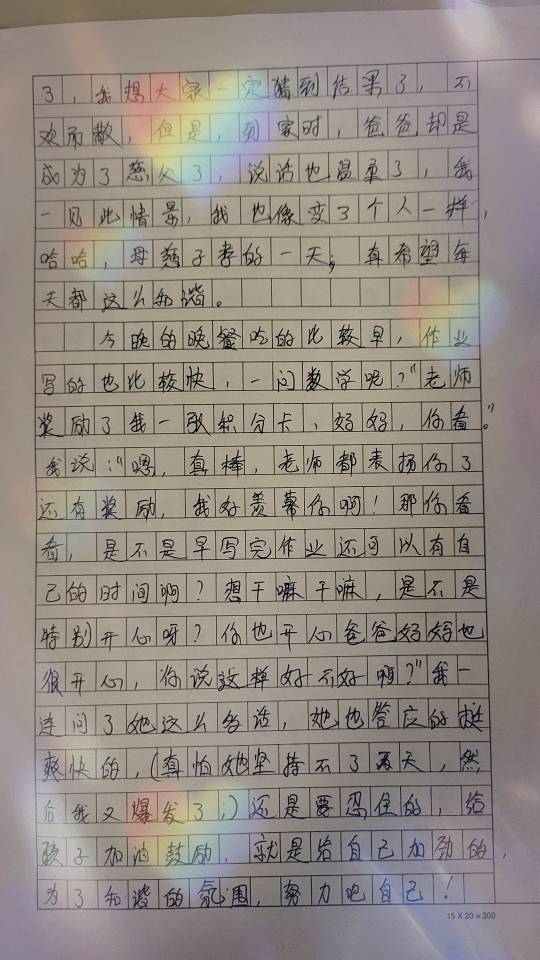 了，我想大家一定猜到结果了，不
欢而散，但是，到家时，爸爸却是
成为了慈父了，说话也温柔了，我
一见此情景，我也像变了个人一样，
哈哈，母慈子孝的一天；真希望每
天都这么和谐。
今晚的晚餐吃的比较早，作业
写的也比较快，一问数学呢？“老师
奖励了我一张积分卡，妈妈，你看。”
我说：“嗯，真棒，老师都表扬你了
还有奖励，我好羡慕你啊！那你看
看，是不是早写完作业还可以有自
己的时间啊？想干嘛干嘛，是不是
特别开心呀？你也开心爸爸妈妈也
很开心，你说这样好不好啊？”我一
连问了她这么多话，她也答应的挺
爽快的，（真怕她坚持不了两天，然
后我又爆发了，）还是要忍住的，给
孩子加油鼓励，就是给自己加劲的，
为了和谐的氛围，努力吧自己！
15 X 20 = 300